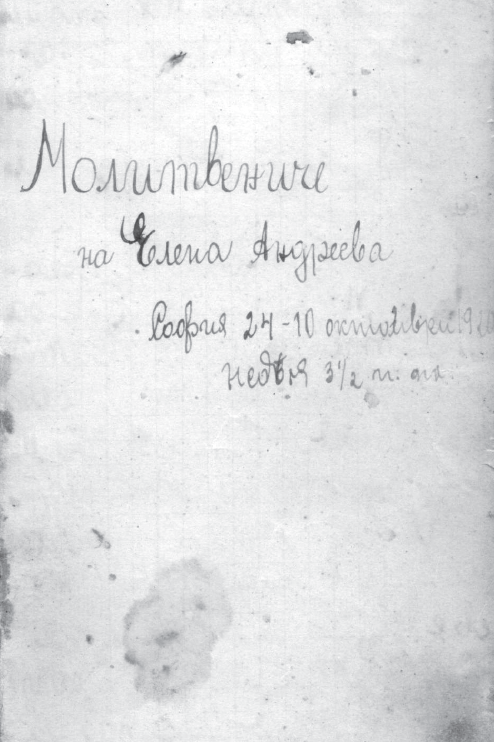 Молитвениче
на Елена Андреева
София 24-10 октомври
недѣля 3½ ч.